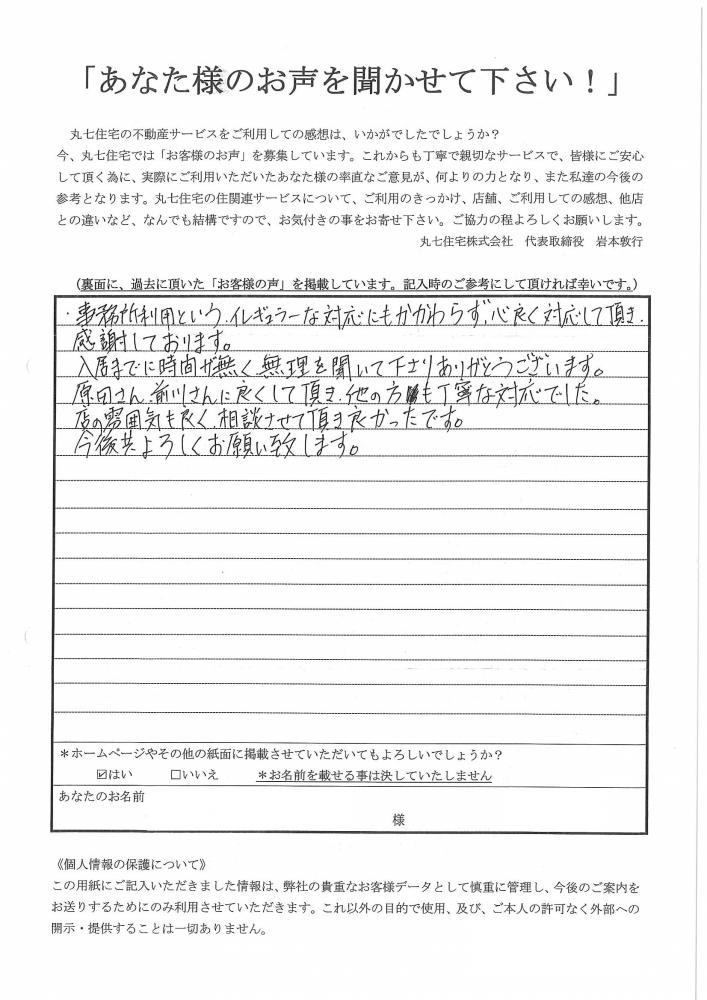 「あなた様のお声を聞かせて下さい！」
丸七住宅の不動産サービスをご利用しての感想は、いかがでしたでしょうか？
今、丸七住宅では「お客様のお声」を募集しています。これからも丁寧で親切なサービスで、皆様にご安心
して頂く為に、実際にご利用いただいたあなた様の率直なご意見が、何よりの力となり、また私達の今後の
参考となります。丸七住宅の住関連サービスについて、ご利用のきっかけ、店舗、ご利用しての感想、他店
との違いなど、なんでも結構ですので、お気付きの事をお寄せ下さい。ご協力の程よろしくお願いします。
丸七住宅株式会社　代表取締役　岩本敦行
（裏面に、過去に頂いた「お客様の声」を掲載しています。記入時のご参考にして頂ければ幸いです。）
・事務所利用という、イレギュラーな対応にもかかわらず、心良く対応して頂き、
感謝しております。
入居までに時間が無く、無理を聞いて下さりありがとうございます。
原田さん、前川さんに良くして頂き、他の方も丁寧な対応でした。
店の雰囲気も良く、相談させて頂き良かったです。
今後共よろしくお願い致します。
＊ホームページやその他の紙面に掲載させていただいてもよろしいでしょうか？
☑はい　□いいえ　＊お名前を載せる事は決していたしません
あなたのお名前
様
《個人情報の保護について》
この用紙にご記入いただきました情報は、弊社の貴重なお客様データとして慎重に管理し、今後のご案内を
お送りするためにのみ利用させていただきます。これ以外の目的で使用、及び、ご本人の許可なく外部への
開示・提供することは一切ありません。